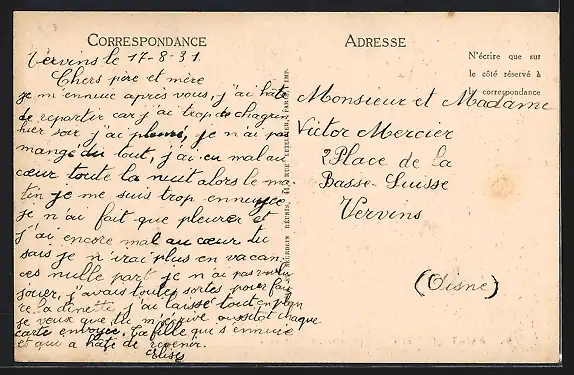 CORRESPONDANCE
Vervins le 17-8-31.
Chers père et mère
je m'ennuie après vous, j'ai hâte
de repartir car j'ai trop de chagrin
hier soir j'ai pleuré, je n'ai pas
mangé du tout, j'ai eu mal au
cœur toute la nuit alors le ma-
tin je me suis trop ennuyée
je n'ai fait que pleurer et
j'ai encore mal au cœur tu
sais je n'irai plus en vacan-
ces nulle part je n'ai pas voulu
jouer, j'avais toutes sortes pour fai-
re la dinette j'ai laissé tout en plan
je veux que tu m'écrive aussitôt chaque
carte envoyée. Ta fille qui s'ennuie
et qui a hâte de revenir.
ADRESSE
N'écrire que sur
le côté réservé à
la correspondance
Monsieur et Madame
Victor Mercier
2 Place de la
Basse-Suisse
Vervins
(Oisne)